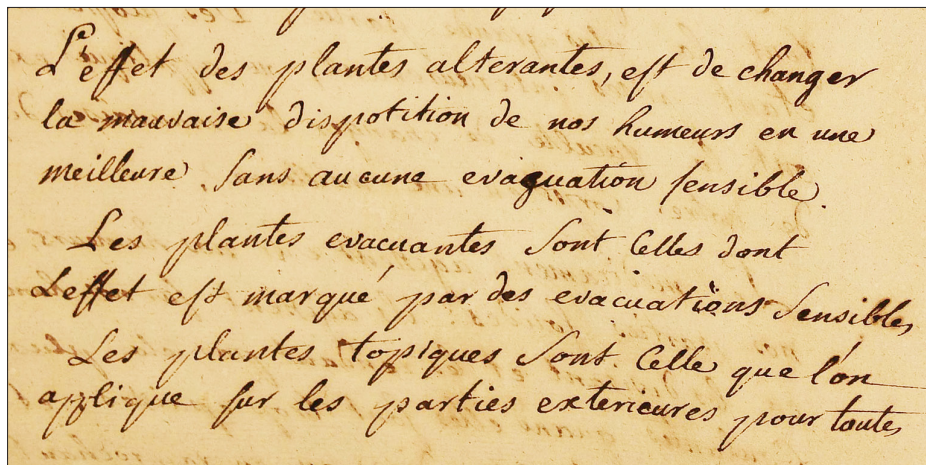 L'effet des plantes alterantes, est de changer
la mauvaise dispotition de nos humeurs en une
meilleure sans aucune evaquation sensible.
Les plantes evacuantes sont Celles dont
Leffet est marqué par des evacuations sensibles
Les plantes topiques sont Celle que l'on
applique sur les parties exterieures pour toutes